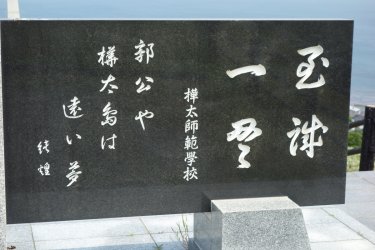 至誠
一貫
樺太師範學校
郭公や
樺太島は
遠い夢